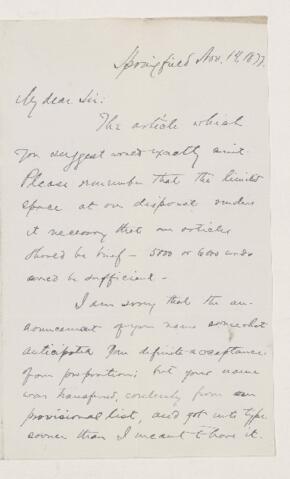 Springfield Nov. 14, 1877.
My dear Sir:
The article which
you suggest would exactly suit.
Please remember that the limited
space at our disposal renders
it necessary that our articles
should be brief – 5000 or 6000 words
would be sufficient –
I am sorry that the an-
nouncement of your name somewhat
anticipated your definite acceptance
of our proposition; but your name
was transferred, carelessly from our
provisional list, and got into type
sooner than I meant to have it.